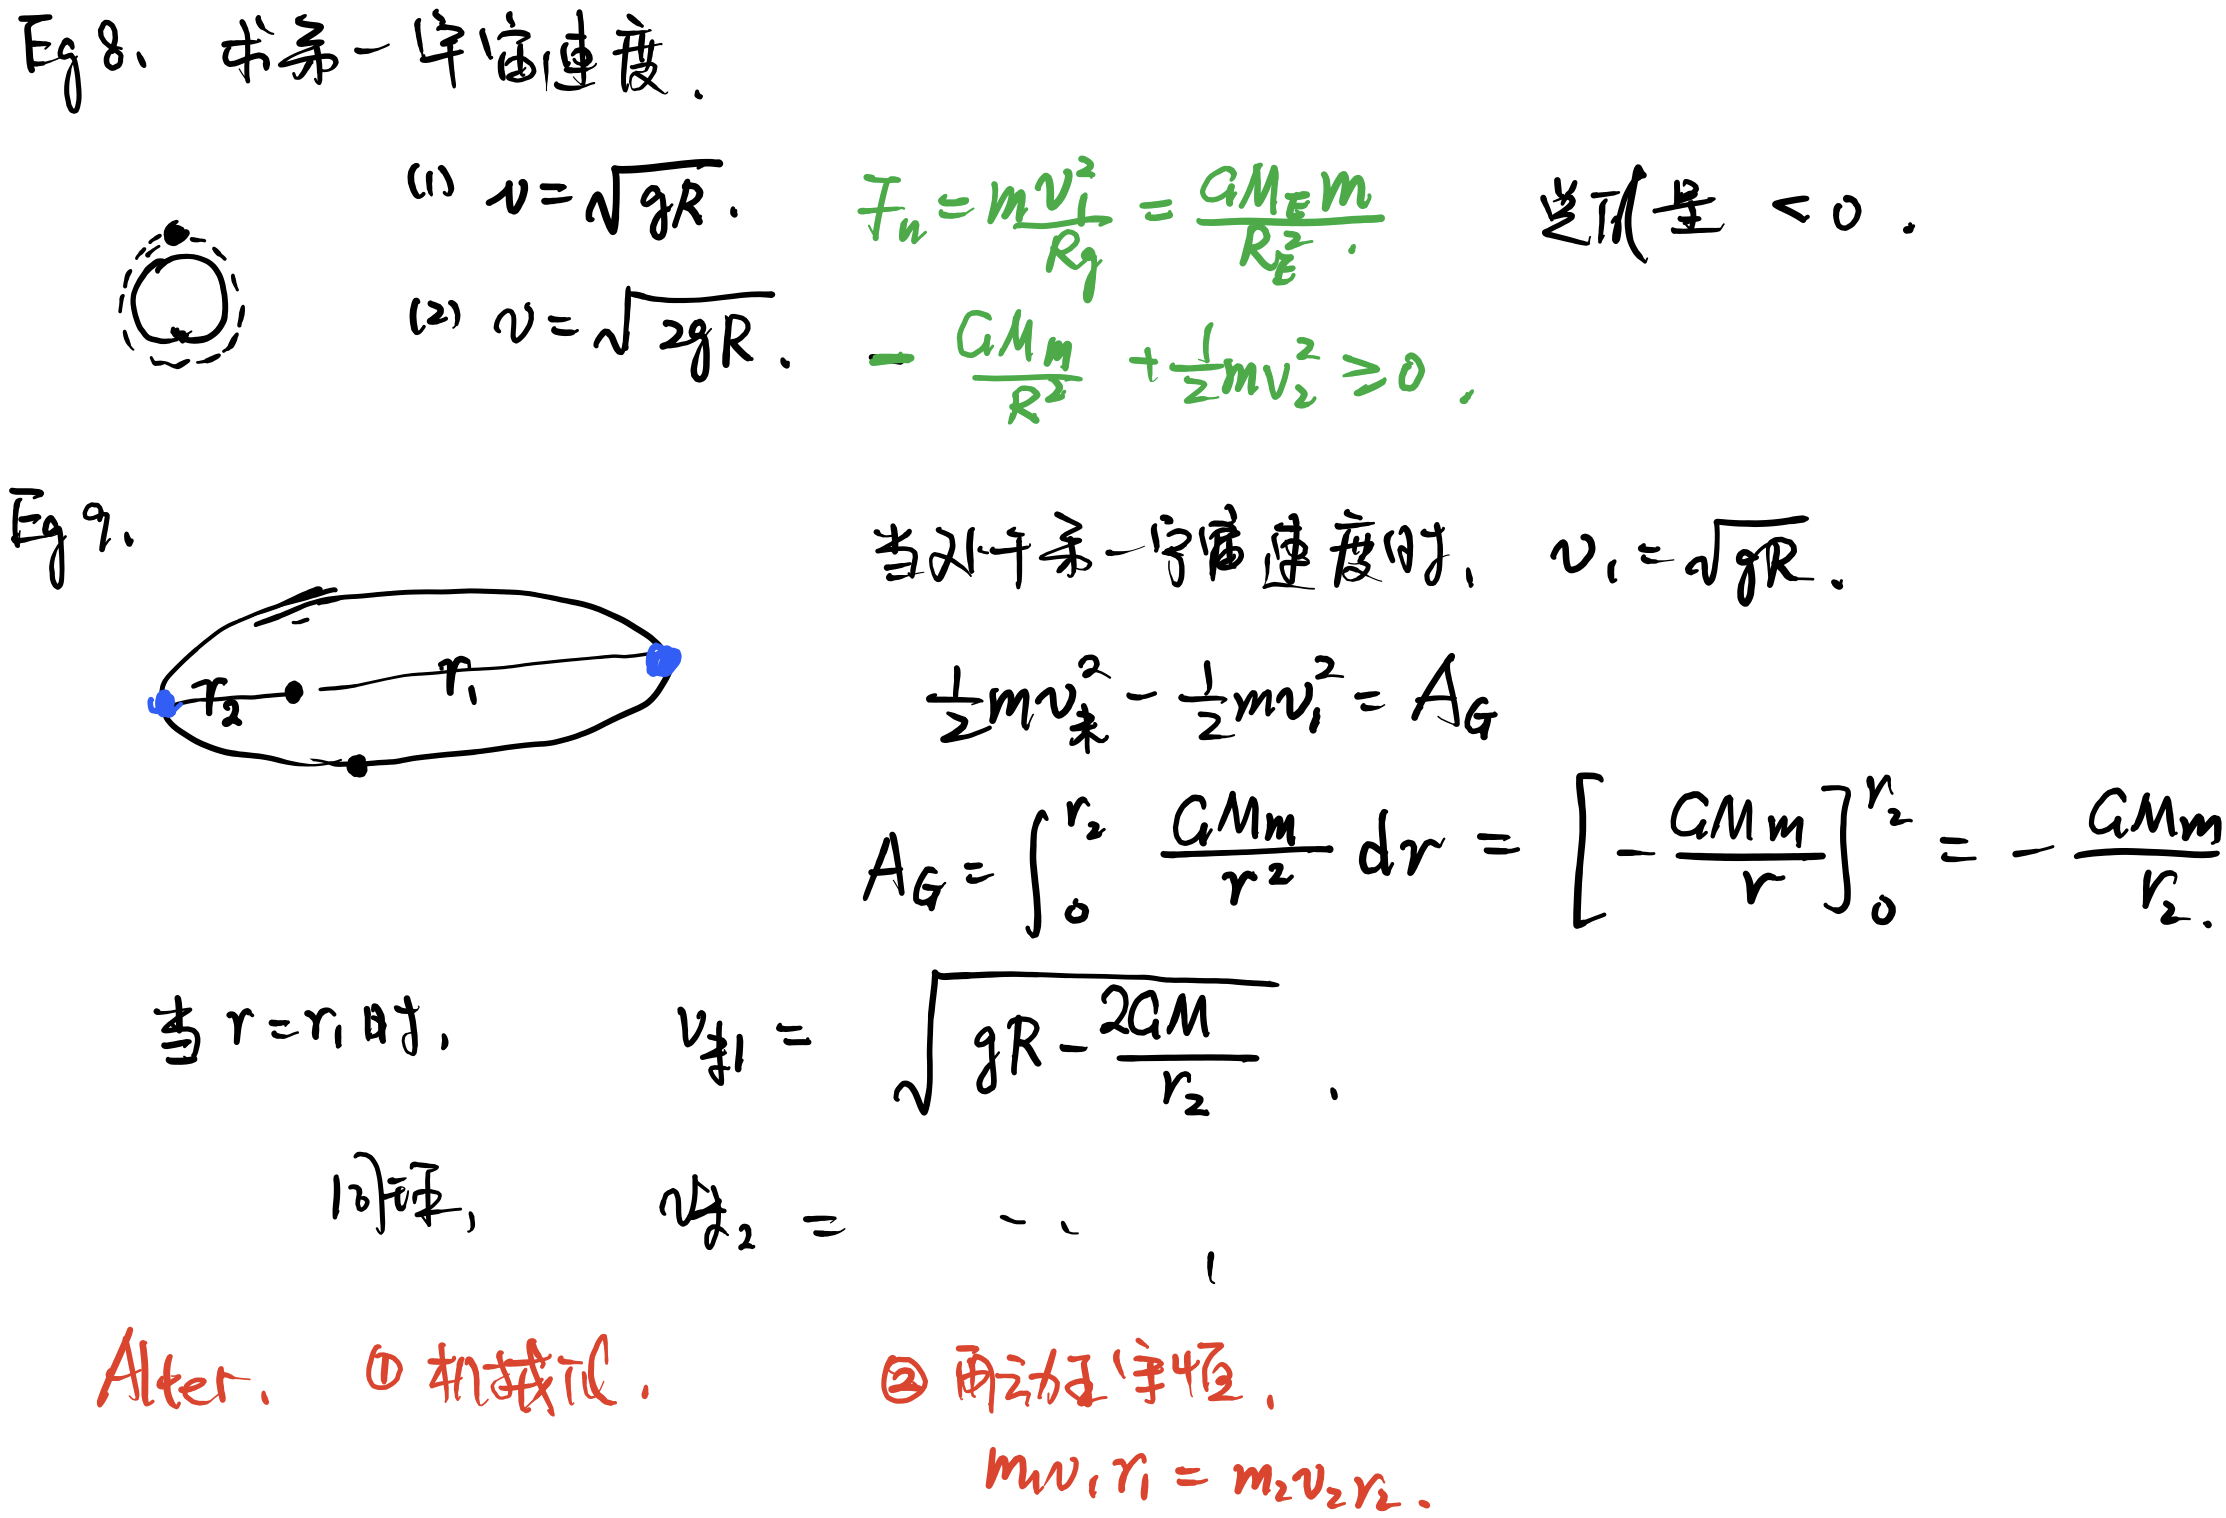 Eg 8. 求第一宇宙速度.
(1) v = √gR. Fn = mv₁²/Rg = GM_E m/R_E². 能量 < 0.
(2) v = √2gR. - GMm/R² + ½mv₂² ≥ 0.
Eg 9.
当对于第一宇宙速度时, v₁ = √gR.
r₂ r₁
½mv末² - ½mv₁² = A_G
A_G = ∫₀^r₂ GMm/r² dr = [-GMm/r]₀^r₂ = -GMm/r₂.
当 r = r₁ 时, v末1 = √(gR - 2GM/r₂).
同理, v末2 = ...
Alter. ① 机械能. ② 角动量守恒.
m₁v₁r₁ = m₂v₂r₂.